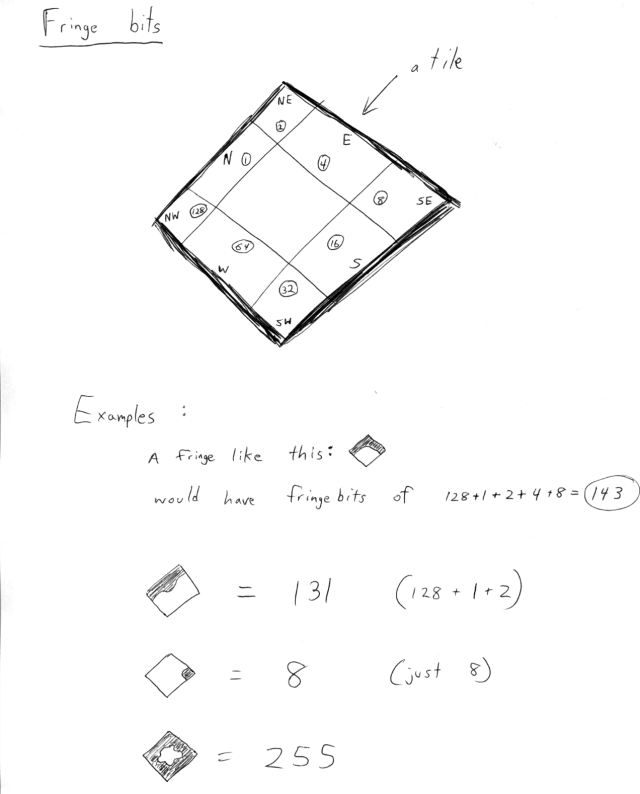 Fringe bits
a tile
NE
2
E
N 1
4
8 SE
NW 128
64
16
W
S
32
SW
Examples :
A fringe like this:
would have fringe bits of 128+1+2+4+8= 143
= 131 (128 + 1+2)
= 8 (just 8)
= 255